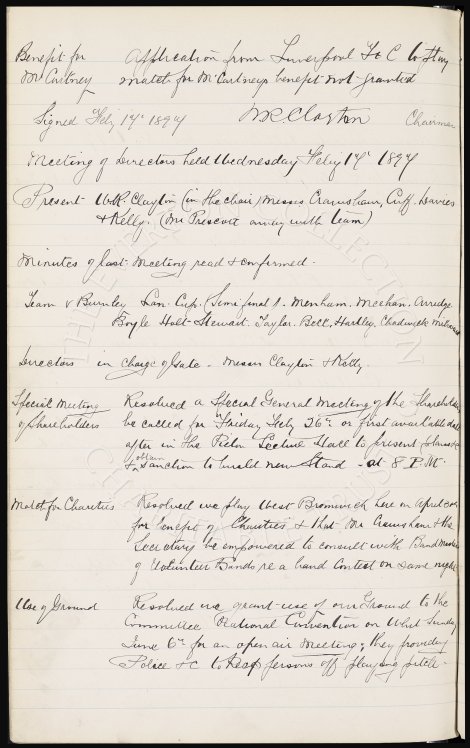 Benefit for Application from Liverpool F & C to play
McCartney match for McCartneys benefit not granted
Signed Feby 17th 1897 W.R. Clayton Chairman
Meeting of Directors held Wednesday Feby 17th 1897
Present W.R. Clayton (in the chair) Messrs Crawshaw, Cuff, Davies
& Kelly. (Mr Prescott away with team)
Minutes of last meeting read & confirmed.
Team v Burnley Lan. Cup. (Semi final). Menham. Meehan. Arridge.
Boyle Holt Stewart. Taylor. Bell. Hartley. Chadwick Milward
Directors in charge of Gate - Messrs Clayton & Kelly.
Special Meeting Resolved a Special General Meeting of the Shareholders
of Shareholders be called for Friday Feby 26th or first available date
after in the Picton Lecture Hall to present plans &c
& obtain sanction to build new Stand - at 8 P.M.
Match for Charities Resolved we play West Bromwich here on April
for benefit of Charities & that Mr Crawshaw & the
Secretary be empowered to consult with Bandmasters
of Volunteer Bands re a band contest on same night
Use of Ground Resolved we grant use of our Ground to the
Committee National Convention on Whit Sunday
June 6th for an open air Meeting; they providing
Police &c to keep persons off playing pitch.
THE
COLLECTION